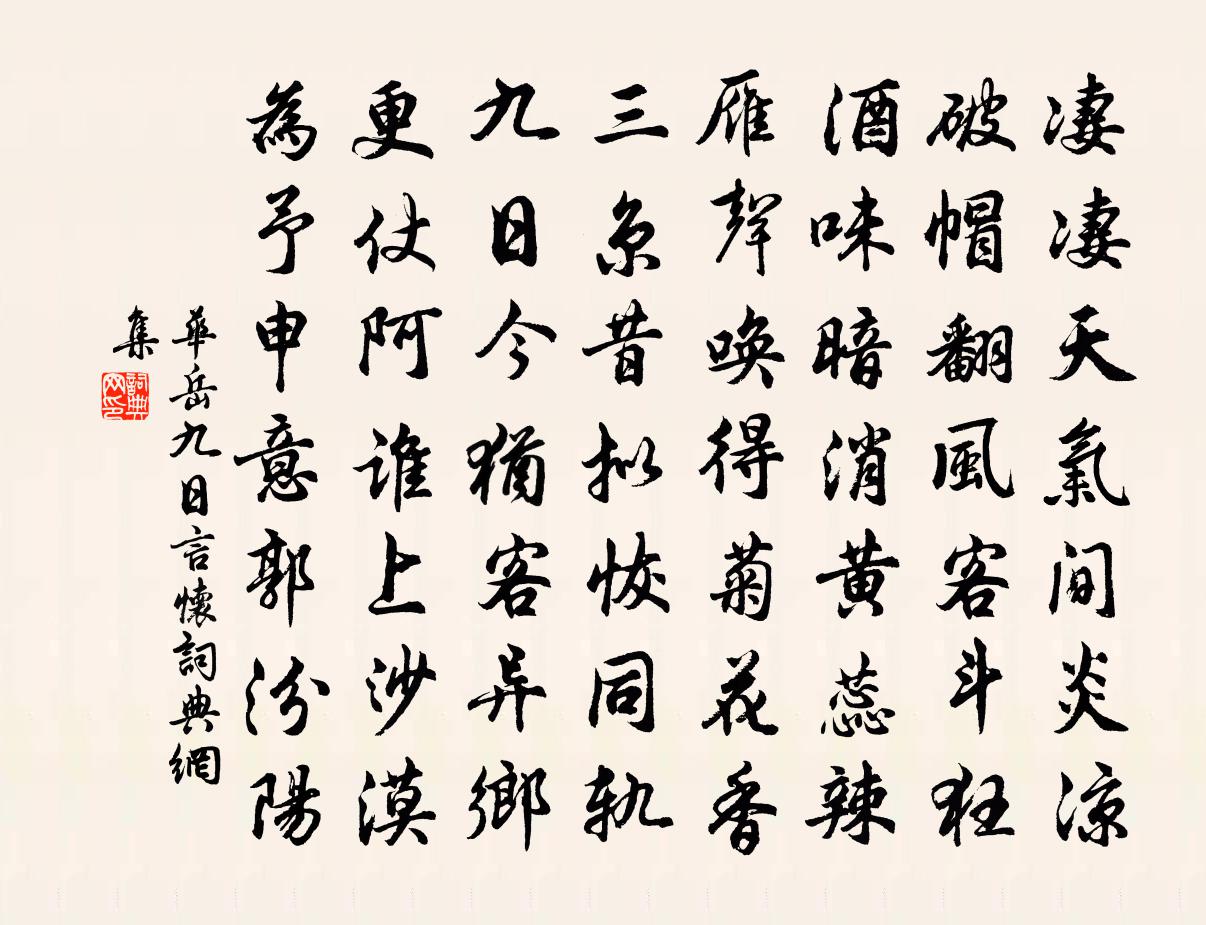 凄凄天氣間炎涼
破帽翻風客斗狂
酒味暗消黄蕊辣
雁聲唤得菊花香
三京昔拟恢同轨
九日今猶客异鄉
更仗阿谁上沙漠
為予申意郭汾陽
華岳九日言懷詞典網
集
詞典
网印